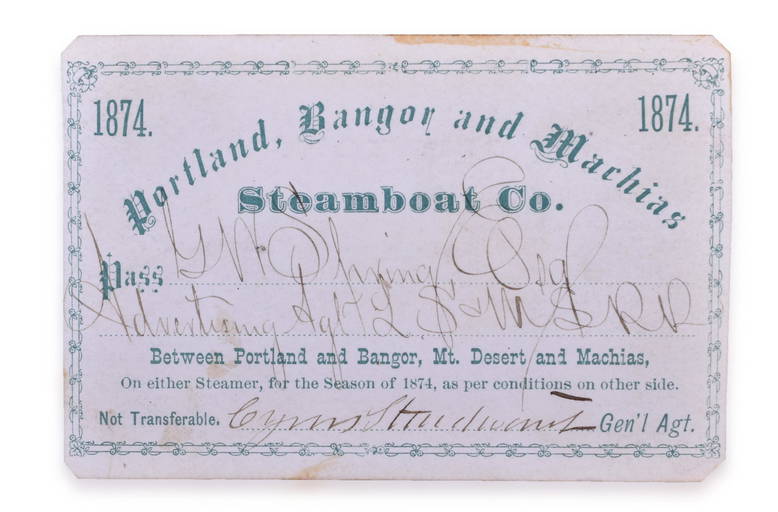 1874. 1874.
Portland, Bangor and Machias
Steamboat Co.
Pass G W Spring, Esq
Advertising Agt L S & M S R R
Between Portland and Bangor, Mt. Desert and Machias,
On either Steamer, for the Season of 1874, as per conditions on other side.
Not Transferable. Cyrus Sturdivant Gen'l Agt.